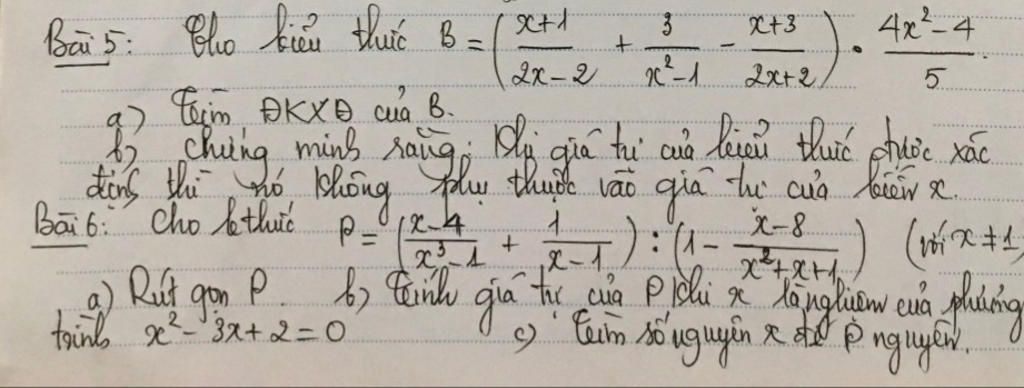 Bài 5: Cho biểu thức B = ( (x+1)/(2x-2) + 3/(x²-1) - (x+3)/(2x+2) ) · (4x²-4)/5.
a) Tìm ĐKXĐ của B.
b) Chứng minh rằng: Khi giá trị của biểu thức được xác
định thì nó không phụ thuộc vào giá trị của biến x.
Bài 6: Cho b thức P = ( (x-4)/(x³-1) + 1/(x-1) ) : ( 1 - (x-8)/(x²+x+1) ) (với x ≠ 1
a) Rút gọn P. b) Tính giá trị của P khi x là nghiệm của phương
trình x² - 3x + 2 = 0 c) Tìm số nguyên x để P nguyên.